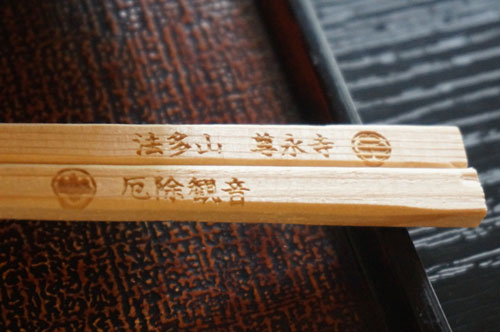 法多山 尊永寺
厄除観音